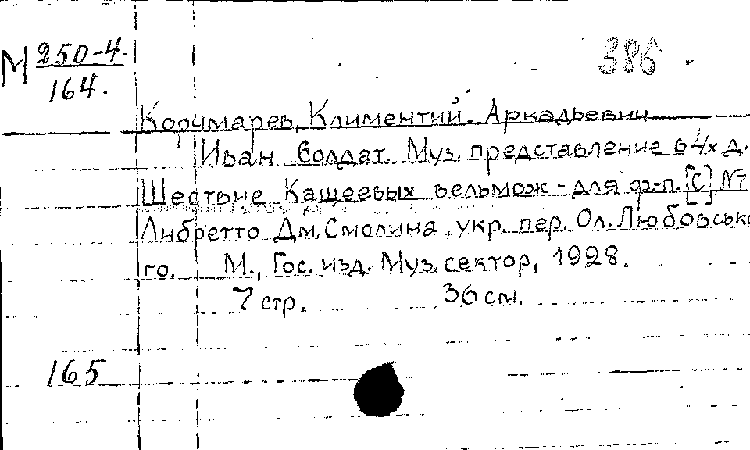 М 250-4. 386
164.
Корчмарев, Климентий. Аркадьевич
Иван Солдат. Муз. представление в 4х д.
Шествие Кащеевых вельмож - для ф-п. [С] №
Либретто Дм. Смолина, укр. пер. Ол. Любовсько
го. М., Гос. изд. Муз. сектор, 1928.
7 стр. 36 см.
165